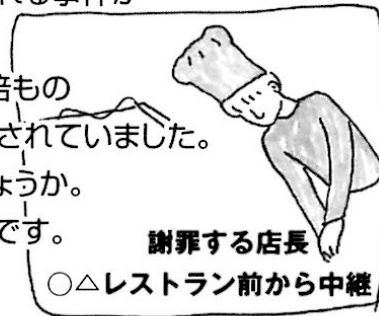 れる事件が
倍もの
されていました。
ょうか。
です。
謝罪する店長
○△レストラン前から中継